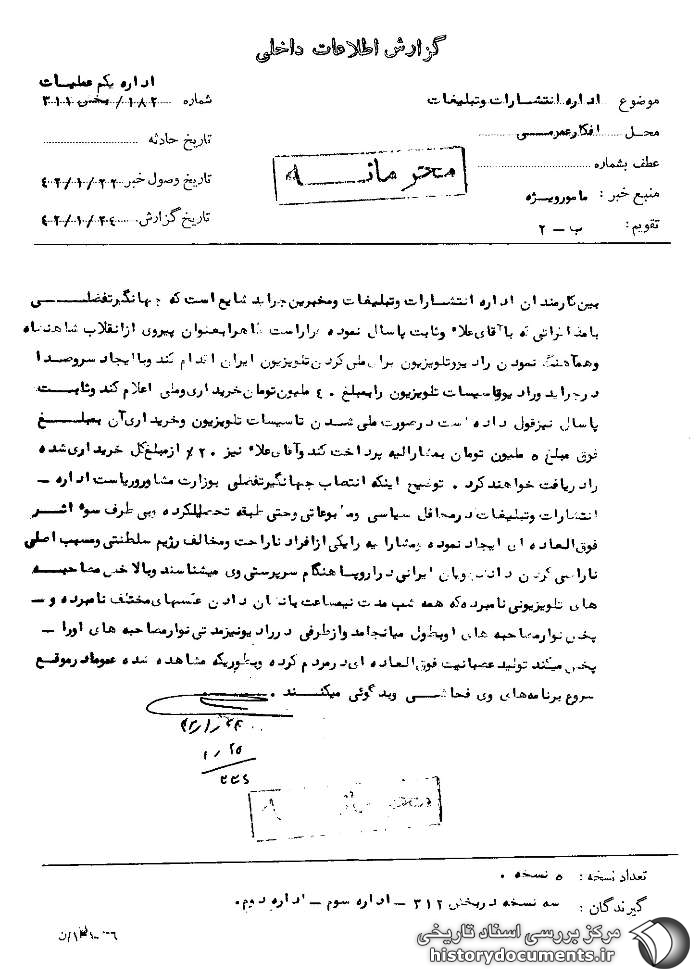 گزارش اطلاعات داخلی
اداره یکم عملیات
موضوع اداره انتشارات و تبلیغات
شماره ۱۸۲/بخش ۳۱۱
محل افکار عمومی
تاریخ حادثه
عطف بشماره
محرمانه
تاریخ وصول خبر ۴۲/۱/۲۲
منبع خبر : مامور ویژه
تاریخ گزارش ۴۲/۱/۲۴
تقویم : ب - ۲
بین کارمندان اداره انتشارات و تبلیغات و مخبرین جراید شایع است که جهانگیر تفضلی
با مذاکراتی که با آقای علاء و ثابت پاسال نموده قرار است ظاهرا بعنوان پیروی از انقلاب شاهنشاه
و هم‌آهنگ نمودن رادیو و تلویزیون برای ملی کردن تلویزیون ایران اقدام کند و با ایجاد سروصدا
در جراید و رادیو تاسیسات تلویزیون را بمبلغ ۴۰ ملیون تومان خریداری و ملی اعلام کند و ثابت
پاسال نیز قول داده است در صورت ملی شدن تاسیسات تلویزیون و خریداری آن بمبلغ
فوق مبلغ ۵ ملیون تومان بمشارالیه پرداخت کند و آقای علاء نیز ۲۰٪ از مبلغ کل خریداری شده
را دریافت خواهند کرد . توضیح اینکه انتصاب جهانگیر تفضلی بوزارت مشاور و ریاست اداره -
انتشارات و تبلیغات در محافل سیاسی و مطبوعاتی و حتی طبقه تحصیلکرده و بی طرف سوء اثر
فوق العاده ای ایجاد نموده و مشارالیه را یکی از افراد ناراحت و مخالف رژیم سلطنتی و مسبب اصلی
ناراضی کردن دانشجویان ایرانی در اروپا هنگام سرپرستی وی میشناسند و بالاخص مصاحبه
های تلویزیونی نامبرده که همه شب مدت نیمساعت با نشان دادن عکسهای مختلف نامبرده و -
پخش نوار مصاحبه های او بطول میانجامد و از طرفی در رادیو نیز مدتی نوار مصاحبه های او را -
پخش میکند تولید عصبانیت فوق العاده ای در مردم کرده و بطوریکه مشاهده شده عموما در موقع
شروع برنامه‌های وی فحاشی و بدگوئی میکنند .
۴۲/۱/۲۴
۱/۲۵
تعداد نسخه : ۵ نسخه .
گیرندگان : سه نسخه در بخش ۳۱۲ - اداره سوم - اداره دوم .
مرکز بررسی اسناد تاریخی
historydocuments.ir